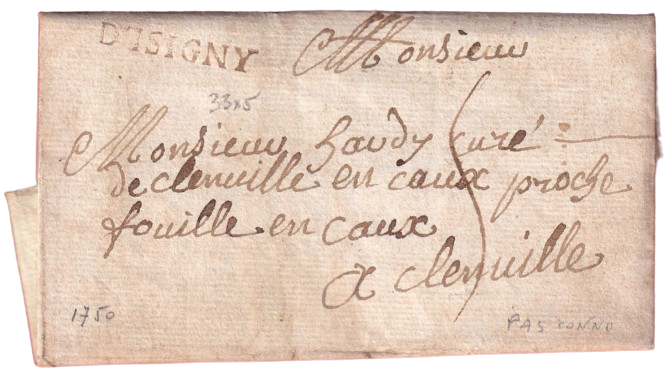 D'ISIGNY
Monsieur
33x5
Monsieur hardy Curé
de clenville en caux proche
fouille en caux
a clenville
1750
PAS CONNU